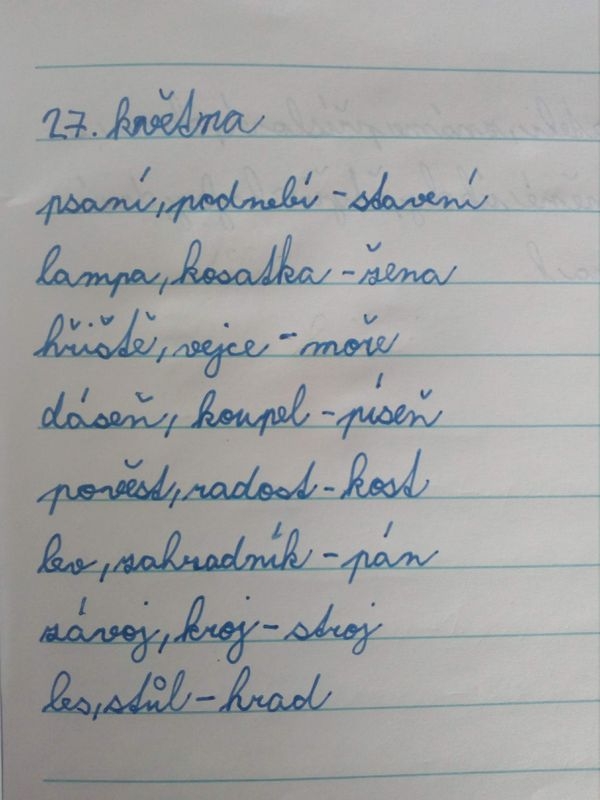 27. května
psaní, podnebí - stavení
lampa, kosatka - žena
hřiště, vejce - moře
dáseň, koupel - píseň
pověst, radost - kost
lev, zahradník - pán
závoj, kroj - stroj
les, stůl - hrad